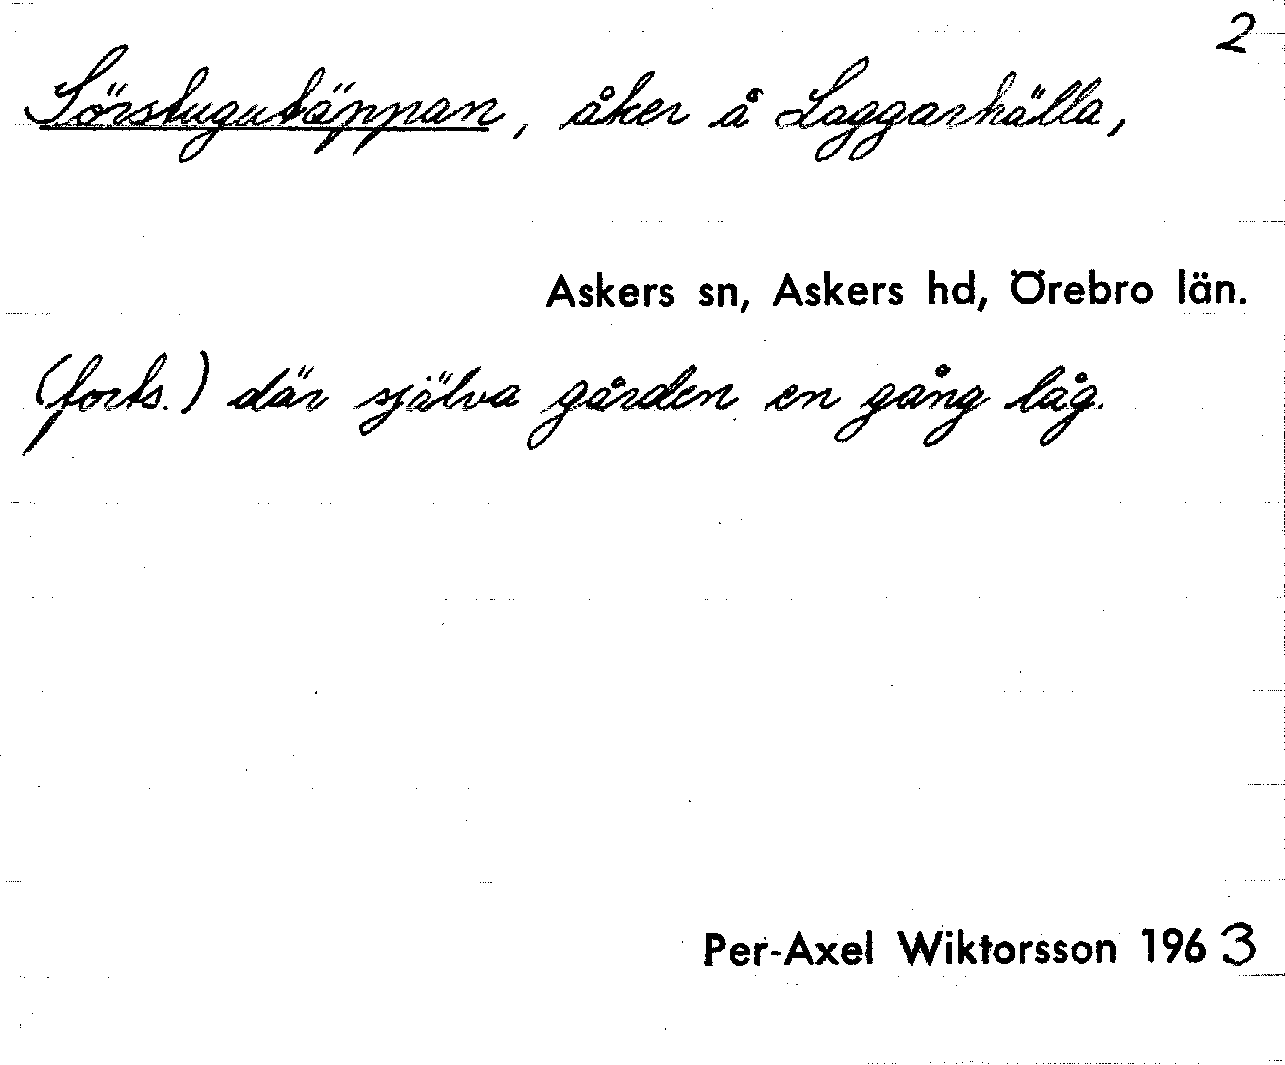 2
Sörstugutäppan, åker å Laggarhälla,
Askers sn, Askers hd, Örebro län.
(forts.) där själva gården en gång låg.
Per-Axel Wiktorsson 1963